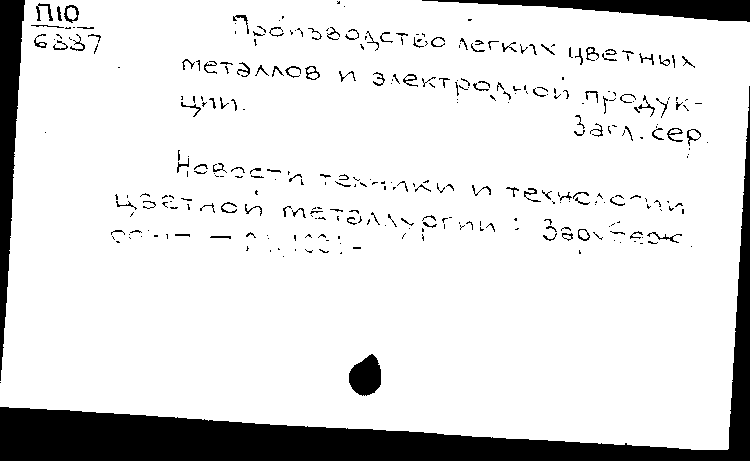 П10
6387
Производство легких цветных
металлов и электродной продук-
ции.
Загл. сер.
Новости техники и технологии
цветной металлургии : Зарубеж.